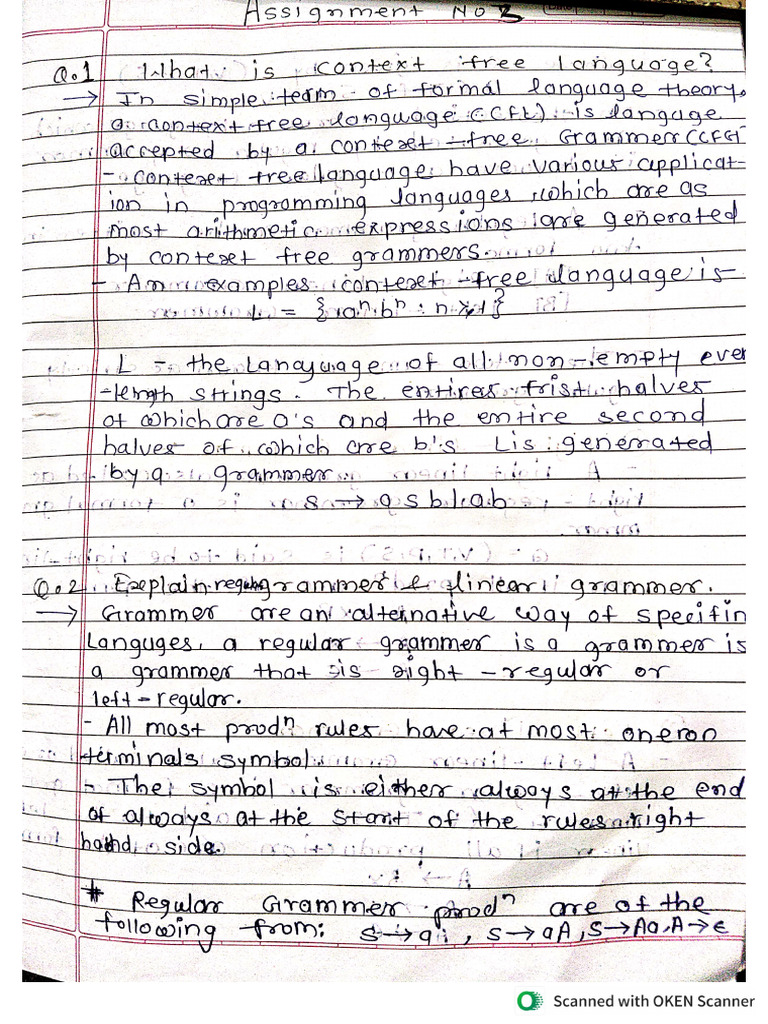 Assignment No 3
Q.1 What is context free language?
→ In simple team of formal language theory,
a context free language (CFL) is languge
accepted by a context-free Grammer (CFG)
- context free language have various applicat-
ion in programming languages which are as
most arithmetic expressions are generated
by context free grammers.
- An examples context-free language is
L = {aⁿbⁿ : n ≥ 1}
L - the Language of all non-empty even
-length strings. The entires frist halves
of which are a's and the entire second
halves of which are b's L is generated
by a grammer
S → a s b | ab
Q.2 Explain regular grammer & linear grammer.
→ Grammer are an alternative way of specifin
Languges, a regular grammer is a grammer is
a grammer that is right-regular or
left-regular.
- All most prodⁿ rules have at most one non
terminals symbol
- The symbol is either always at the end
of always at the start of the rules right
hand side.
* Regular Grammer prodⁿ are of the
following from: S→a, S→aA, S→Aa, A→ϵ
Scanned with OKEN Scanner